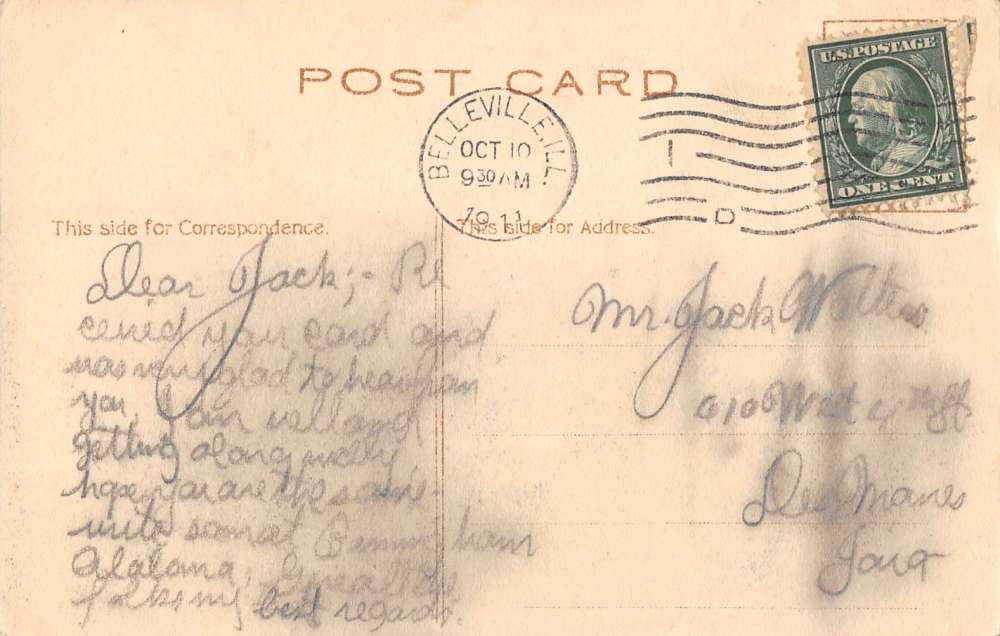 POST CARD
U.S. POSTAGE
ONE CENT
BELLEVILLE, ILL.
OCT 10
9 30 AM
1911
1
D
This side for Correspondence.
This side for Address.
Dear Jack;- Re
ceived your card and
was very glad to hear from
you, I am well and
getting along nicely,
hope you are the same.
write soon at Birmingham
Alabama, Give all the
folks my best regards.
Mr. Jack Walters
610 West
Des Moines
Iowa